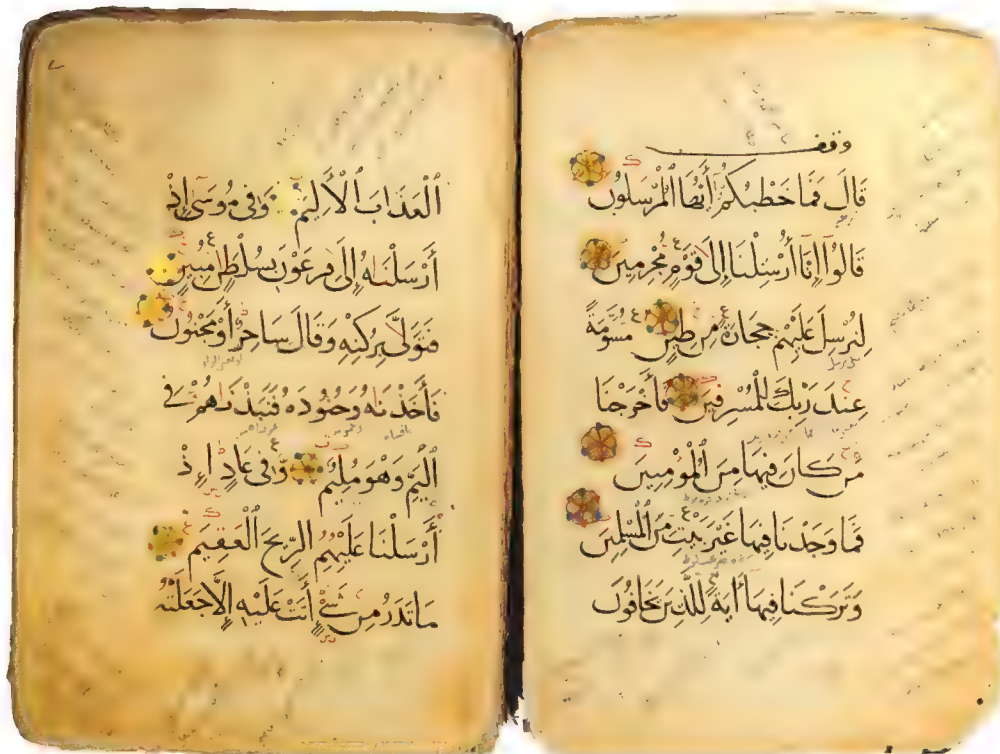 وقف
قَالَ فَمَا خَطْبُكُمْ أَيُّهَا ٱلْمُرْسَلُونَ
قَالُوٓا۟ إِنَّآ أُرْسِلْنَآ إِلَىٰ قَوْمٍ مُّجْرِمِينَ
لِنُرْسِلَ عَلَيْهِمْ حِجَارَةً مِّن طِينٍ مُّسَوَّمَةً
عِندَ رَبِّكَ لِلْمُسْرِفِينَ فَأَخْرَجْنَا
مَن كَانَ فِيهَا مِنَ ٱلْمُؤْمِنِينَ
فَمَا وَجَدْنَا فِيهَا غَيْرَ بَيْتٍ مِّنَ ٱلْمُسْلِمِينَ
وَتَرَكْنَا فِيهَآ ءَايَةً لِّلَّذِينَ يَخَافُونَ
ٱلْعَذَابَ ٱلْأَلِيمَ وَفِى مُوسَىٰٓ إِذْ
أَرْسَلْنَٰهُ إِلَىٰ فِرْعَوْنَ بِسُلْطَٰنٍ مُّبِينٍ
فَتَوَلَّىٰ بِرُكْنِهِۦ وَقَالَ سَاحِرٌ أَوْ مَجْنُونٌ
فَأَخَذْنَٰهُ وَجُنُودَهُۥ فَنَبَذْنَٰهُمْ فِى
ٱلْيَمِّ وَهُوَ مُلِيمٌ وَفِى عَادٍ إِذْ
أَرْسَلْنَا عَلَيْهِمُ ٱلرِّيحَ ٱلْعَقِيمَ
مَا تَذَرُ مِن شَىْءٍ أَتَتْ عَلَيْهِ إِلَّا جَعَلَتْهُ